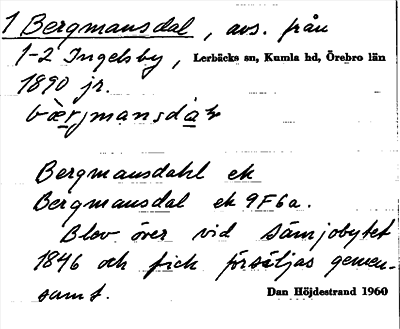 1 Bergmansdal, avs. från
1-2 Ingelsby, Lerbäcks sn, Kumla hd, Örebro län
1890 jr.
bæ̀rjmansdɑ̀ɫ
Bergmansdahl ek
Bergmansdal ek 9F6a.
Blev över vid sämjobytet
1846 och fick försäljas gemen-
samt. Dan Höjdestrand 1960